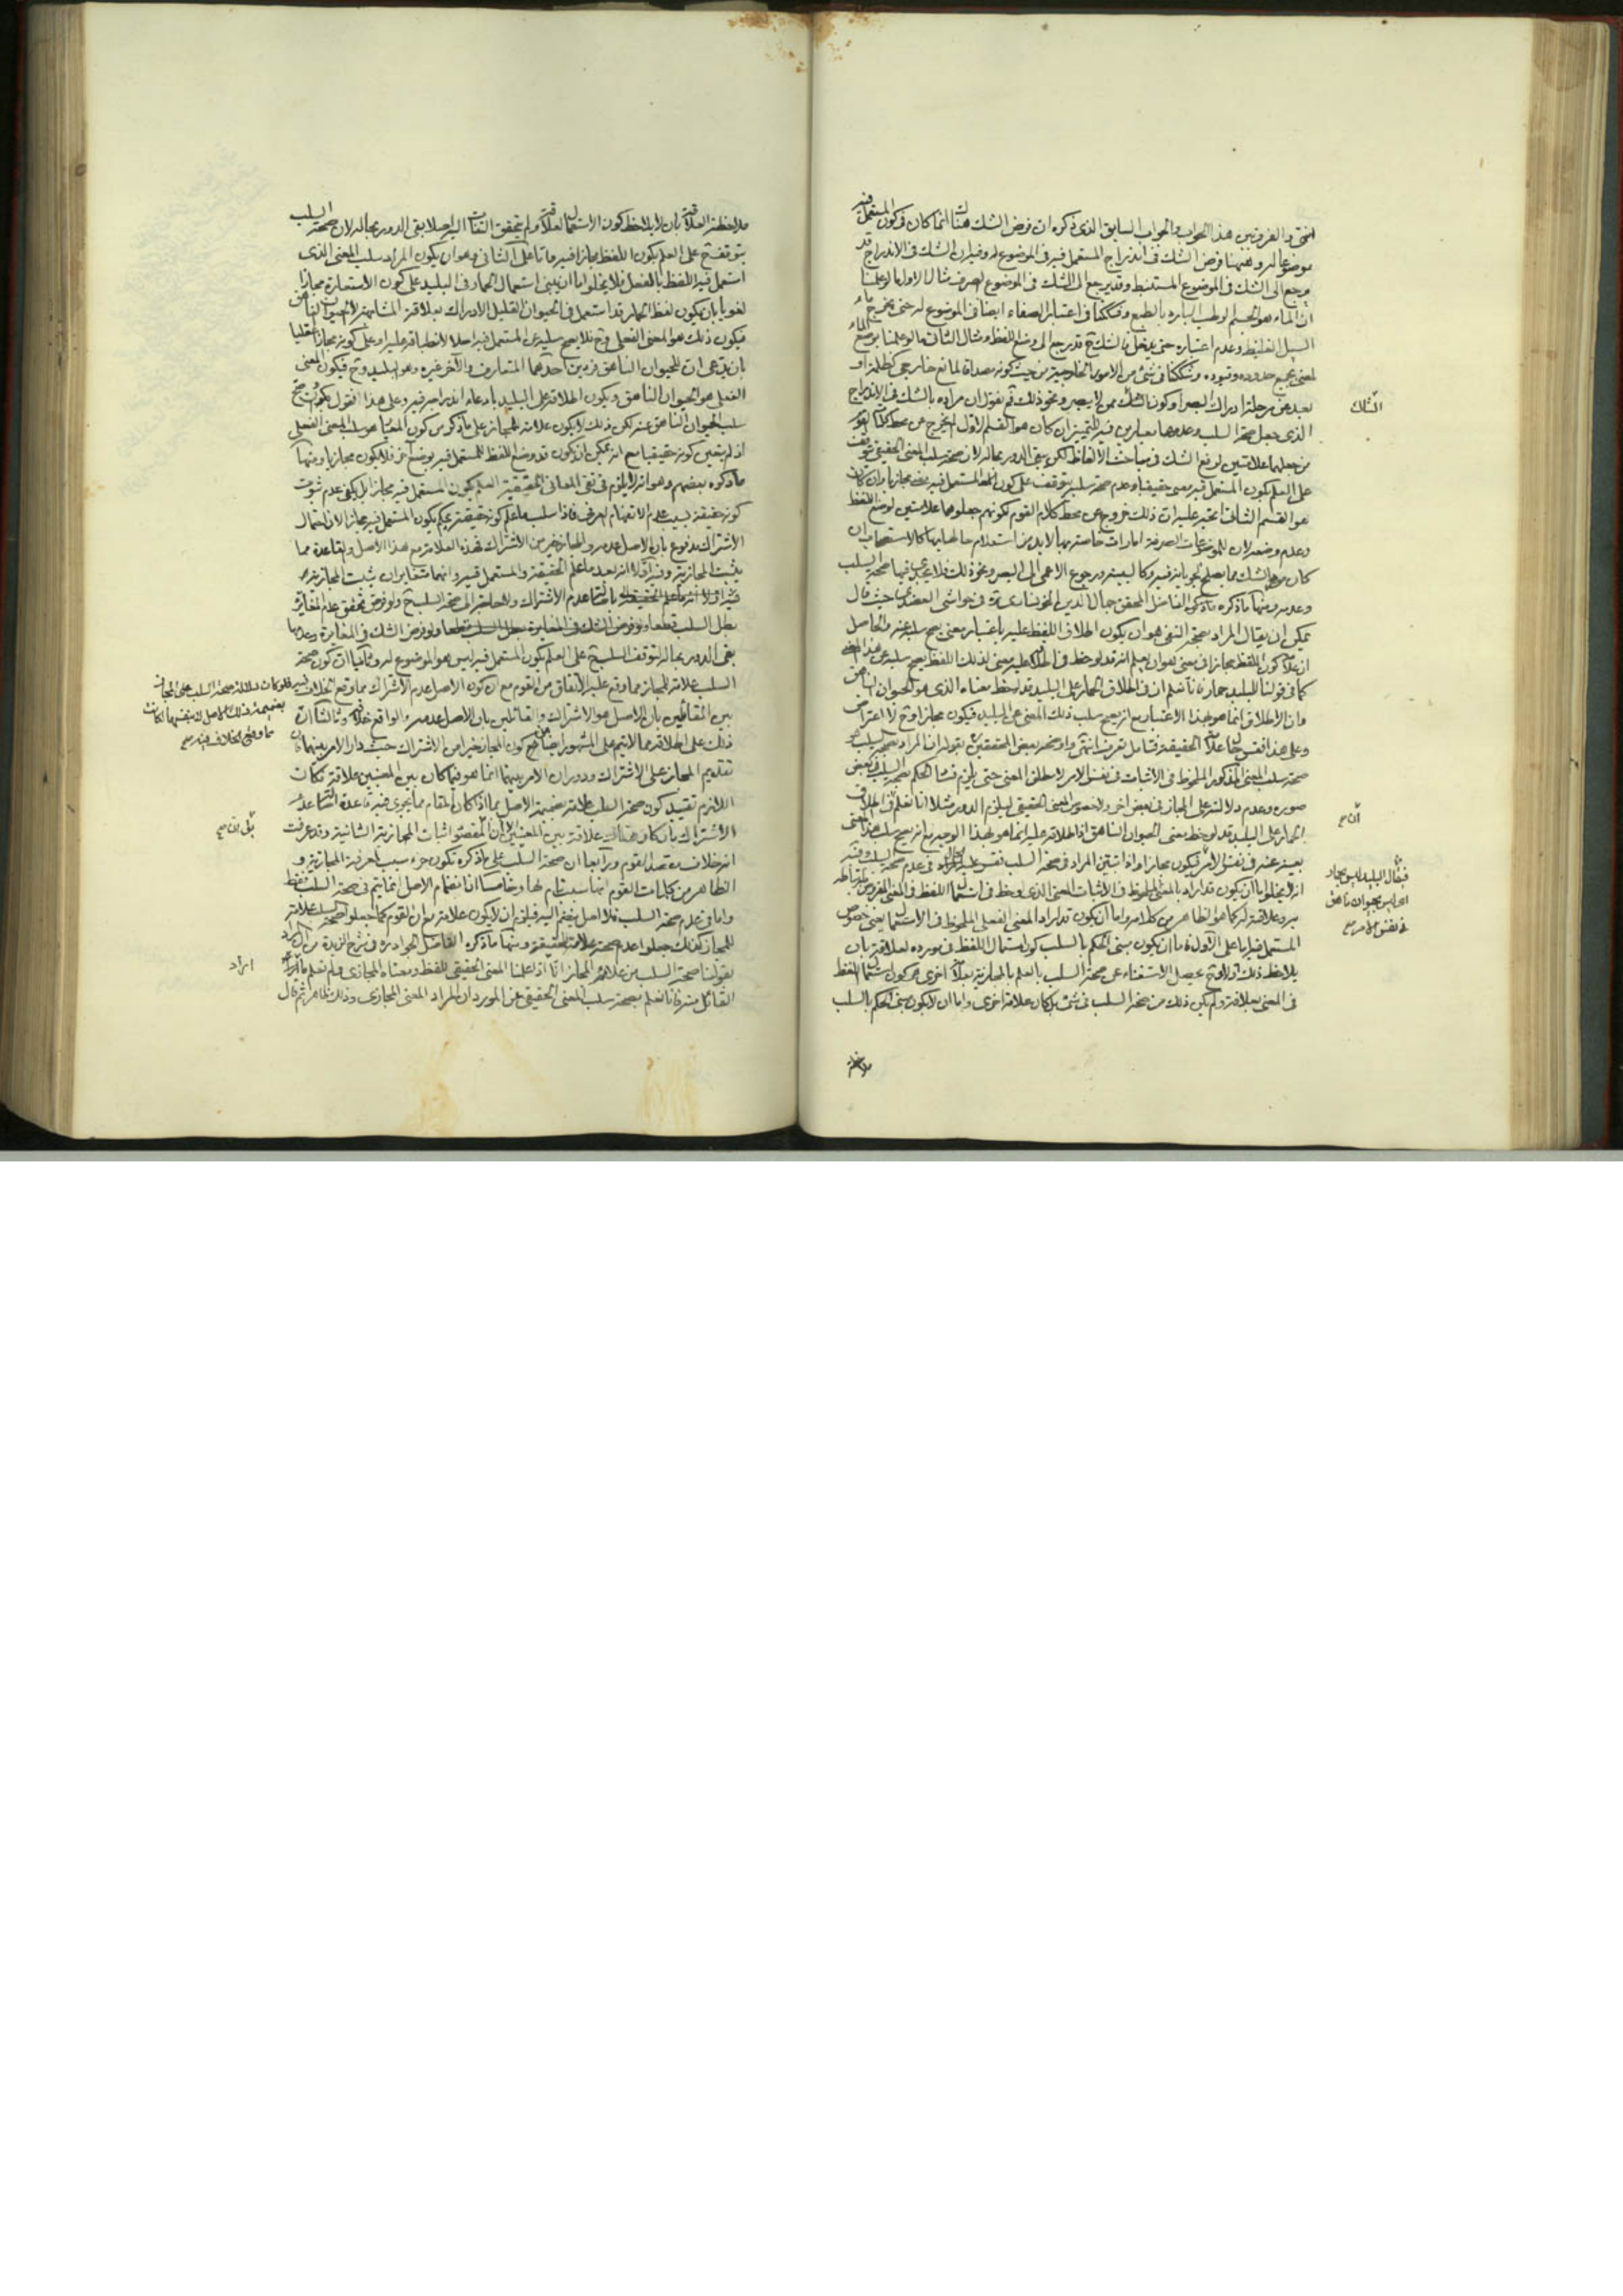 انتهى والفرق بين هذا الجواب والجواب السابق الذي ذكره ان فرض الشك هناك انما كان في كون المستعمل فيه
موضوعا له وهنا فرض الشك في اندراج المستعمل فيه في الموضوع له وفيه ان الشك في الاندراج قد
يرجع الى الشك في الموضوع المستنبط وقد يرجع الى الشك في الموضوع الصرف مثال الاول ما لو علمنا
ان الماء هو الجسم الرطب البارد بالطبع وشككنا في اعتبار الصفاء ايضا في الموضوع له حتى يخرج ماء
السيل الغليظ وعدم اعتباره حتى يدخل فالشك ح قد رجع الى وضع اللفظ ومثال الثاني ما لو علمنا بوضع الماء
لمعنى بجميع حدوده وقيوده وشككنا في شئ من الامور الخارجية من حيث كونه مصداقا لمانع خارجي كظلمة او
بعد عن مرحلة ادراك البصر او كون الشاك ممن لا يبصر ونحو ذلك ثم نقول ان مراده بالشك في الاندراج
الذي جعل صحة السلب وعدمها معيارين فيه للتمييز ان كان هو القسم الاول لم يخرج عن محط كلام القوم
من جعلهما علامتين لرفع الشك في مباحث الالفاظ لكن يبقى الدور بحاله لان صحة سلب المعنى الحقيقي تتوقف
على العلم بكون المستعمل فيه معنى حقيقيا وعدم صحة سلبه يتوقف على كون المستعمل فيه معنى مجازيا وان كان
هو القسم الثاني اتجه عليه ان ذلك خروج عن محط كلام القوم لكونهم جعلوهما علامتين لوضع اللفظ
وعدم وضعه لان للموضوعات الصرفة امارات خاصة بها لابد من استعلام حالها بها كالاستصحاب ان
وعدمه ومنها ما ذكره الفاضل المحقق جمال الدين الخوانساري قده في حواشي العضدي حيث قال
يمكن ان يقال المراد بصحة النفي هو ان يكون اطلاق اللفظ عليه باعتبار معنى يصح سلبه عنه والحاصل
ان علامة كون اللفظ مجازا في معنى هو ان يعلم انه قد لوحظ في اطلاقه عليه معنى لذلك اللفظ يصح سلبه عن هذا المعنى
كما في قولنا للبليد حمار فانا نعلم ان في اطلاق الحمار على البليد قد لوحظ معناه الذي هو الحيوان الناهق
وان الاطلاق انما هو بهذا الاعتبار مع انه يصح سلب ذلك المعنى عن البليد فيكون مجازا وح لا اعتراض
وعلى هذا فقس حال علامة الحقيقة فتامل تعرف انتهى واوضحه بعض المحققين بقوله ان المراد بصحة السلب هو
صحة سلب المعنى المذكور الملحوظ في الاثبات في نفس الامر لا مطلق المعنى حتى يلزم فساد الحكم بصحة السلب في بعض
صوره وعدم دلالته على المجاز في بعض اخر ولا خصوص المعنى الحقيقي ليلزم الدور مثلا انا نعلم في اطلاق
الحمار على البليد قد لوحظ معنى الحيوان الناهق اذ اطلاقه عليه انما هو بهذا الوجه مع انه يصح سلب هذا المعنى
بعينه عنه في نفس الامر فيكون مجازا واذا تبين المراد في صحة السلب فقس عليه الحال في عدم صحة السلب وفيه
انه لا يخلو اما ان يكون قد اراد بالمعنى الملحوظ في الاثبات المعنى الذي لوحظ في استعمال اللفظ في المعنى المفروض ارتباطه
به وعلاقته له كما هو الظاهر من كلامه واما ان يكون قد اراد المعنى الفعلي الملحوظ في الاستعمال يعني خصوص
المستعمل فيه اما على الاول فاما ان يكون مبنى الحكم بالسلب كون استعمال اللفظ في مورده لعلاقة بان
يلاحظ ذلك اولا وح يحصل الاستغناء عن صحة السلب بالعلم بالمجازية بعلامة اخرى هو كون استعمال اللفظ
في المعنى بعلاقة ولم يكن ذلك من صحة السلب في شئ بل كان علامة اخرى واما ان لا يكون مبنى الحكم بالسلب
الشاك
ان صح
فيقال البليد ليس بحمار
اي ليس بحيوان ناهق
في نفس الامر صح
ملاحظة
ملاحظة العلاقة بان لا يلاحظ كون الاستعمال لعلاقة ولم يتحقق التفات اليه اصلا بقي الدور بحاله لان صحة السلب
يتوقف ح على العلم بكون اللفظ مجازا فيه واما على الثاني وهو ان يكون المراد سلب المعنى الذي
استعمل فيه اللفظ بالفعل فلا يخلو اما ان يبنى استعمال الحمار في البليد على كون الاستعارة مجازا
لغويا بان يكون لفظ الحمار قد استعمل في الحيوان القليل الادراك بعلاقة المشابهة للحيوان الناهق
فيكون ذلك هو المعنى الفعلي وح فلا يصح سلبه عن المستعمل فيه اصلا لانطباقه عليه او على كونه مجازا عقليا
بان يدعى ان للحيوان الناهق فردين احدهما المتعارف والاخر غيره وهو البليد وح فيكون المعنى
الفعلي هو الحيوان الناهق ويكون اطلاقه على البليد بادعاء اندراجه فيه وعلى هذا نقول
سلب الحيوان الناهق عنه لكن ذلك لا يكون علامة للمجاز على ما ذكر من كون المناط هو سلب المعنى الفعلي
اذ لم يتعين كونه حقيقيا مع انه يمكن ان يكون قد وضع اللفظ للمستعمل فيه بوضع اخر فلا يكون مجازيا ومنها
ما ذكره بعضهم وهو انه لا يلزم في نفي المعاني الحقيقية العلم بكون المستعمل فيه مجازا بل يكفي عدم ثبوت
كونه حقيقة بسبب عدم الانفهام العرفي فاذا سلب ما علم كونه حقيقة يحكم بكون المستعمل فيه مجازا لان احتمال
الاشتراك مدفوع بان الاصل عدمه والمجاز خير من الاشتراك فهذه العلامة مع هذا الاصل والقاعدة مما
يثبت المجازية وفيه اولا انه بعد ما علم الحقيقة والمستعمل فيه وانهما متغايران يثبت المجازية
باصالة عدم الاشتراك ولا حاجة الى صحة السلب ح ولو فرض تحقق عدم المغايرة
بطل السلب قطعا ولو فرض الشك في المغايرة وعدمها
بقي الدور بحاله لتوقف السلب ح على العلم بكون المستعمل فيه ليس هو الموضوع له وثانيا ان كون صحة
السلب علامة للمجاز مما وقع عليه الاتفاق من القوم مع ان كون الاصل عدم الاشتراك مما وقع الخلاف فيه
بين القائلين بان الاصل هو الاشتراك والقائلين بان الاصل عدمه والواقع خلافه وثالثا ان
ذلك على اطلاقه مما لا يتم على المشهور ايضا من كون المجاز خيرا من الاشتراك حيث دار الامر بينهما لان
تقديم المجاز على الاشتراك ودوران الامر بينهما انما هو فيما كان بين المعنيين علاقة فكان
اللازم تقييد كون صحة السلب علامة بضميمة الاصل بما اذا كان المقام مما يجري فيه قاعدة اصالة عدم
الاشتراك بان كان هناك علاقة بين المعنيين لان المقصود اثبات المجازية الثانية وقد عرفت
انه خلاف مقصد القوم ورابعا ان صحة السلب على ما ذكره تكون جزء سبب لمعرفة المجازية و
الظاهر من كلمات القوم انها سبب تام لها وخامسا ان انضمام الاصل انما يتم في صحة السلب فقط
واما في عدم صحة السلب فلا اصل ينضم اليه فيلزم ان لا يكون علامة مع ان القوم كما جعلوا صحة السلب علامة
للمجاز كذلك جعلوا عدم صحته علامة للحقيقة ومنها ما ذكره الفاضل الجواد ره في شرح الزبدة من ان المراد
بقولنا صحة السلب من علائم المجاز انا اذا علمنا المعنى الحقيقي للفظ ومعناه المجازي ولم نعلم ما اراد
القائل منه فانا نعلم بصحة سلب المعنى الحقيقي عن المورد ان المراد المعنى المجازي وذلك ظاهر ثم قال
فلو كانت دلالة صحة السلب على المجاز
بضميمة ذلك الاصل لكانت
مما وقع الخلاف فيه صح
ايراد